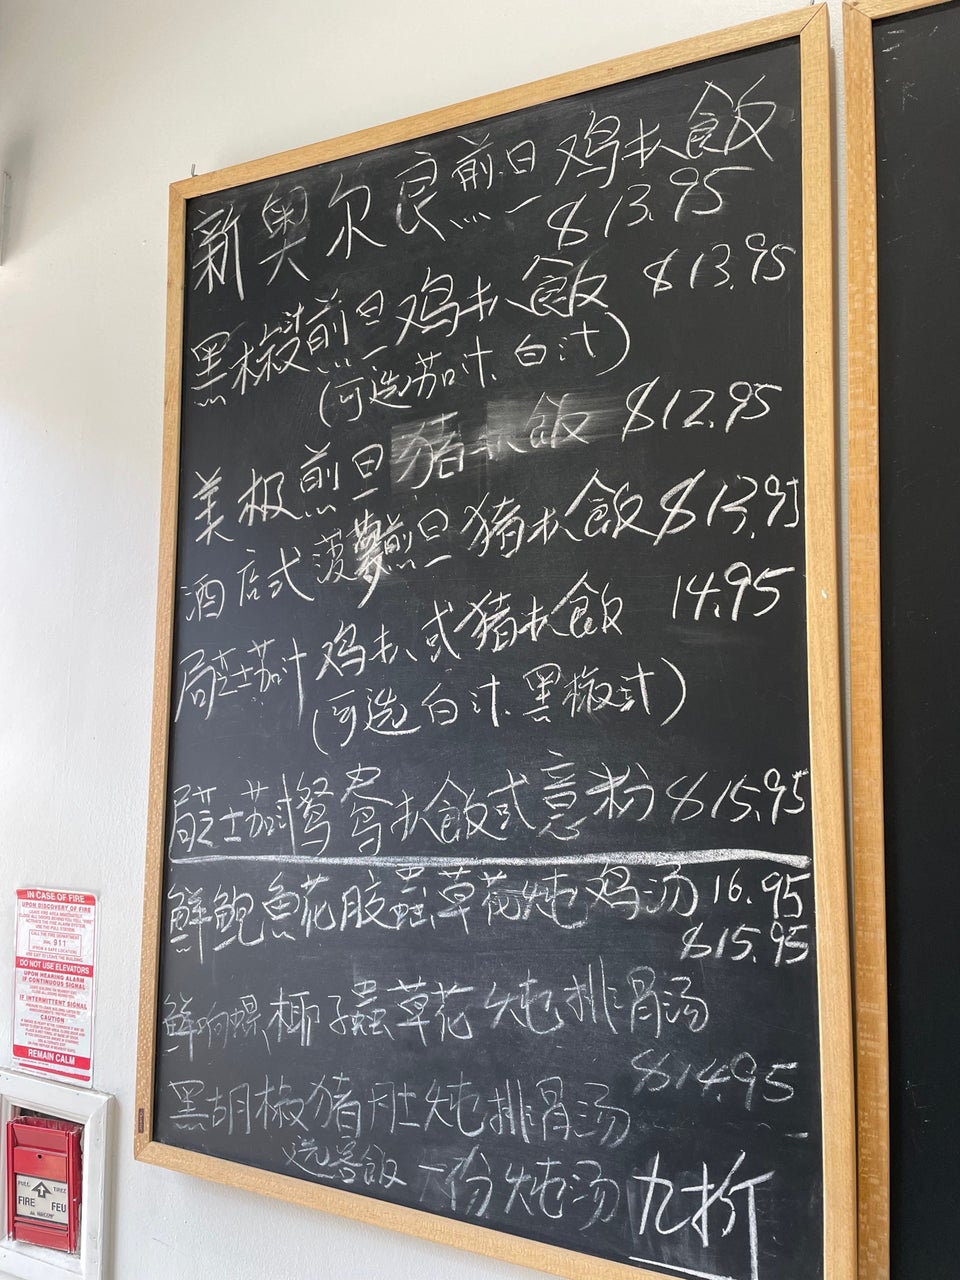 新奥尔良煎旦鸡扒飯
$13.95
黑椒煎旦鸡扒飯 $13.95
(可选茄汁.白汁)
美极煎旦猪扒飯 $12.95
酒店式菠萝煎旦猪扒飯 $13.95
局芝士茄汁鸡扒或猪扒飯 14.95
(可选白汁.黑椒汁)
局芝士茄汁鸳鸯扒飯或意粉 $15.95
鲜鲍魚花胶蟲草花炖鸡汤 16.95
$15.95
鲜响螺椰子蟲草花炖排骨汤
$14.95
黑胡椒猪肚炖排骨汤
一份炖汤 九折
IN CASE OF FIRE
UPON DISCOVERY OF FIRE
911
DO NOT USE ELEVATORS
UPON HEARING ALARM
IF CONTINUOUS SIGNAL
IF INTERMITTENT SIGNAL
CAUTION
REMAIN CALM
PULL TIREZ
FIRE FEU